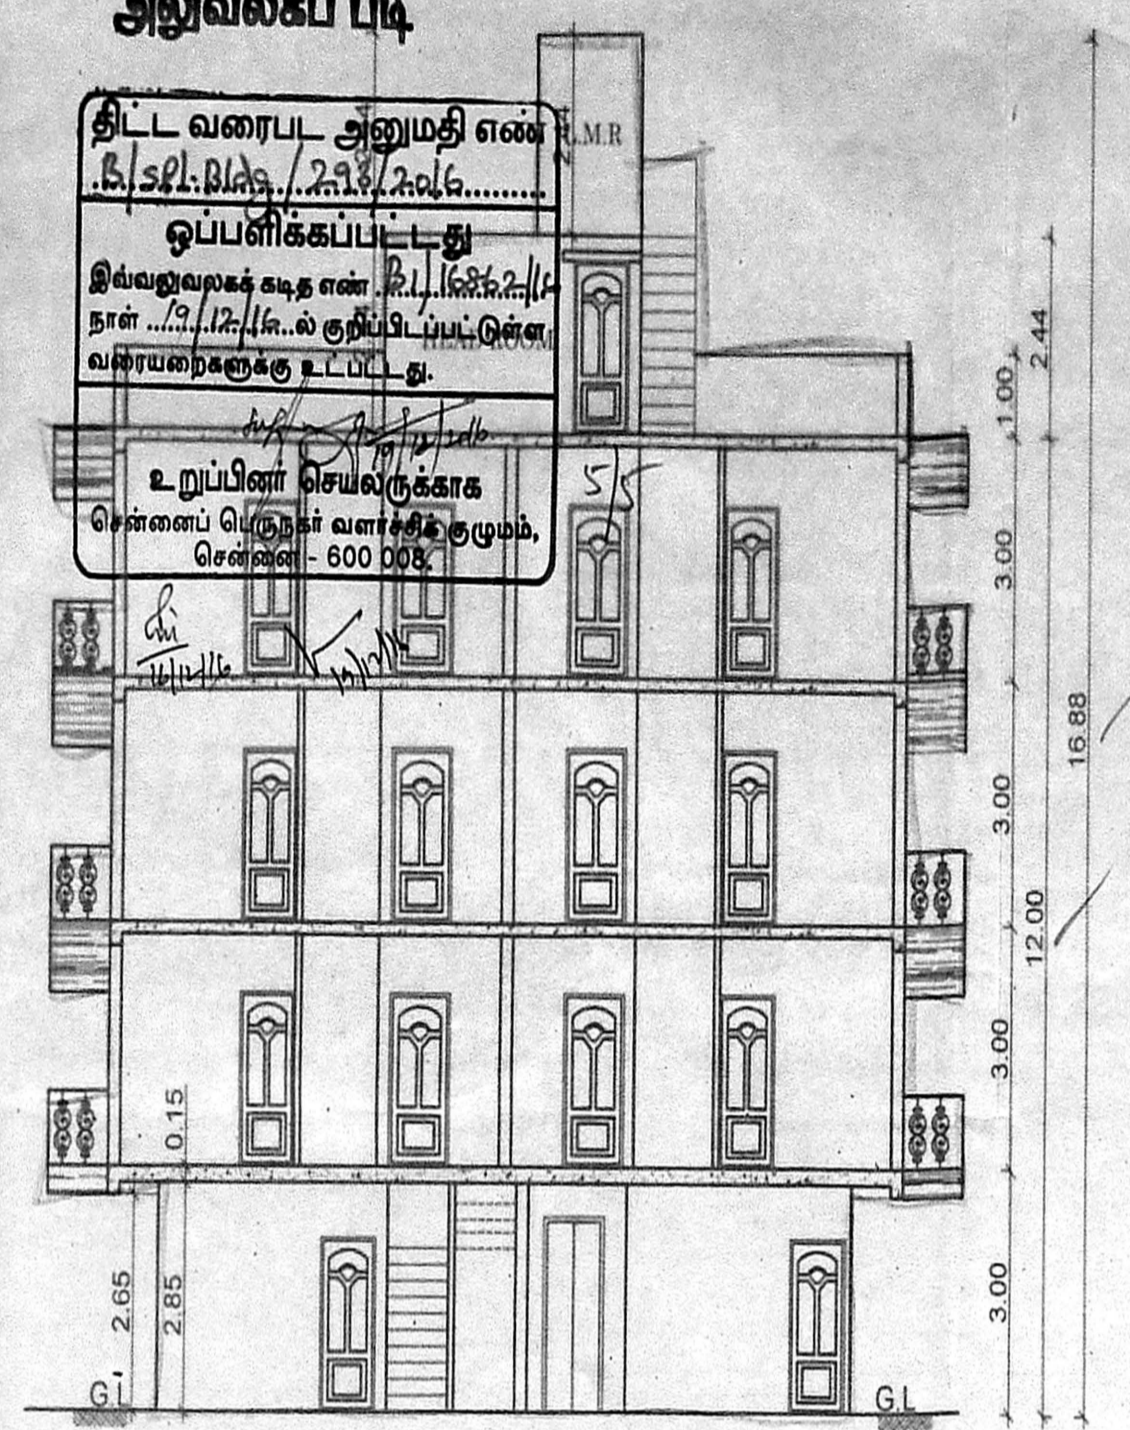 அலுவலகப் படி
திட்ட வரைபட அனுமதி எண்
B/Spl.Bldg/293/2016
ஒப்பளிக்கப்பட்டது
இவ்வலுவலகக் கடித எண்
நாள் 19/12/16 ல் குறிப்பிடப்பட்டுள்ள
வரையறைகளுக்கு உட்பட்டது.
19/12/2016
உறுப்பினர் செயலருக்காக
சென்னைப் பெருநகர் வளர்ச்சிக் குழுமம்,
சென்னை - 600 008.
16/12/16
M.R
HEAD ROOM
5/5
2.44
1.00
3.00
3.00
16.88
12.00
3.00
0.15
3.00
2.65
2.85
G.L
G.L